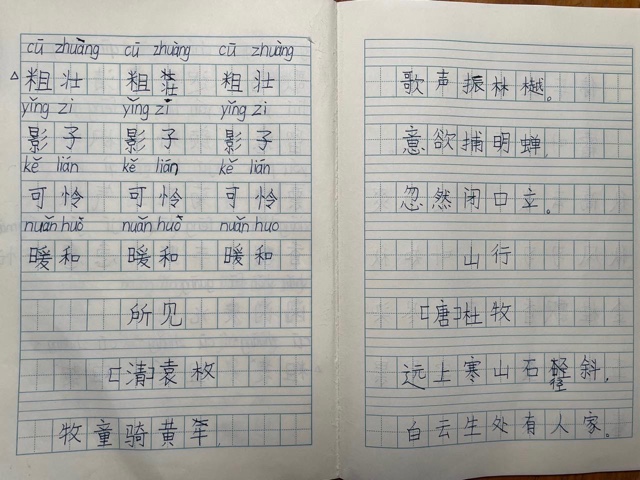 cū zhuàng cū zhuàng cū zhuàng
粗壮 粗壮 粗壮
yǐng zi yǐng zi yǐng zi
影子 影子 影子
kě lián kě lián kě lián
可怜 可怜 可怜
nuǎn huo nuǎn huo nuǎn huo
暖和 暖和 暖和
所见
[清]袁枚
牧童骑黄牛,
歌声振林樾。
意欲捕鸣蝉,
忽然闭口立。
山行
[唐]杜牧
远上寒山石径斜,
白云生处有人家。